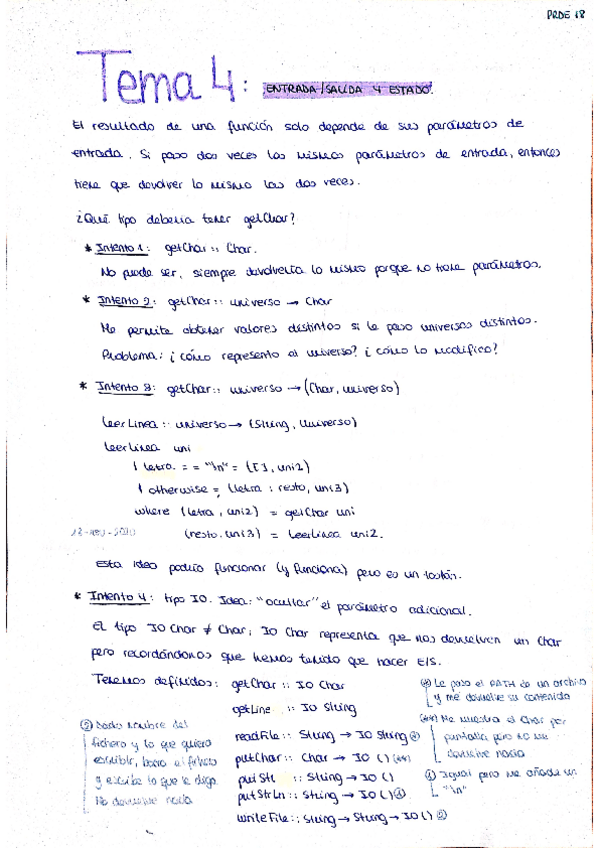 PRDE 18
Tema 4: ENTRADA/SALIDA Y ESTADO.
El resultado de una función solo depende de sus parámetros de
entrada. Si paso dos veces los mismos parámetros de entrada, entonces
tiene que devolver lo mismo las dos veces.
¿Qué tipo debería tener getChar?
* Intento 1: getChar :: Char.
No puede ser, siempre devolvería lo mismo porque no tiene parámetros.
* Intento 2: getChar :: universo → Char
Me permite obtener valores distintos si le paso universos distintos.
Problema: ¿cómo represento el universo? ¿cómo lo modifico?
* Intento 3: getChar :: universo → (Char, universo)
leerLinea :: universo → (String, Universo)
leerLinea uni
| letra == "\n" = ([], uni2)
| otherwise = (letra : resto, uni3)
where (letra, uni2) = getChar uni
(resto, uni3) = leerLinea uni2.
Esta idea podría funcionar (y funciona) pero es un tostón.
* Intento 4: tipo IO. Idea: "ocultar" el parámetro adicional.
El tipo IO Char ≠ Char; IO Char representa que nos devuelven un Char
pero recordándonos que hemos tenido que hacer E/S.
Tenemos definidos: getChar :: IO Char
getLine :: IO String
readFile :: String → IO String (*)
putChar :: Char → IO () (**)
putStr :: String → IO ()
putStrLn :: String → IO () (1)
writeFile :: String → String → IO () (2)
(*) Le paso el PATH de un archivo
y me devuelve su contenido
(**) Me muestra el Char por
pantalla pero no me
devuelve nada
(1) Igual pero me añade un
"\n"
(2) Dado nombre del
fichero y lo que quiero
escribir, borra el fichero
y escribe lo que le digo.
No devuelve nada